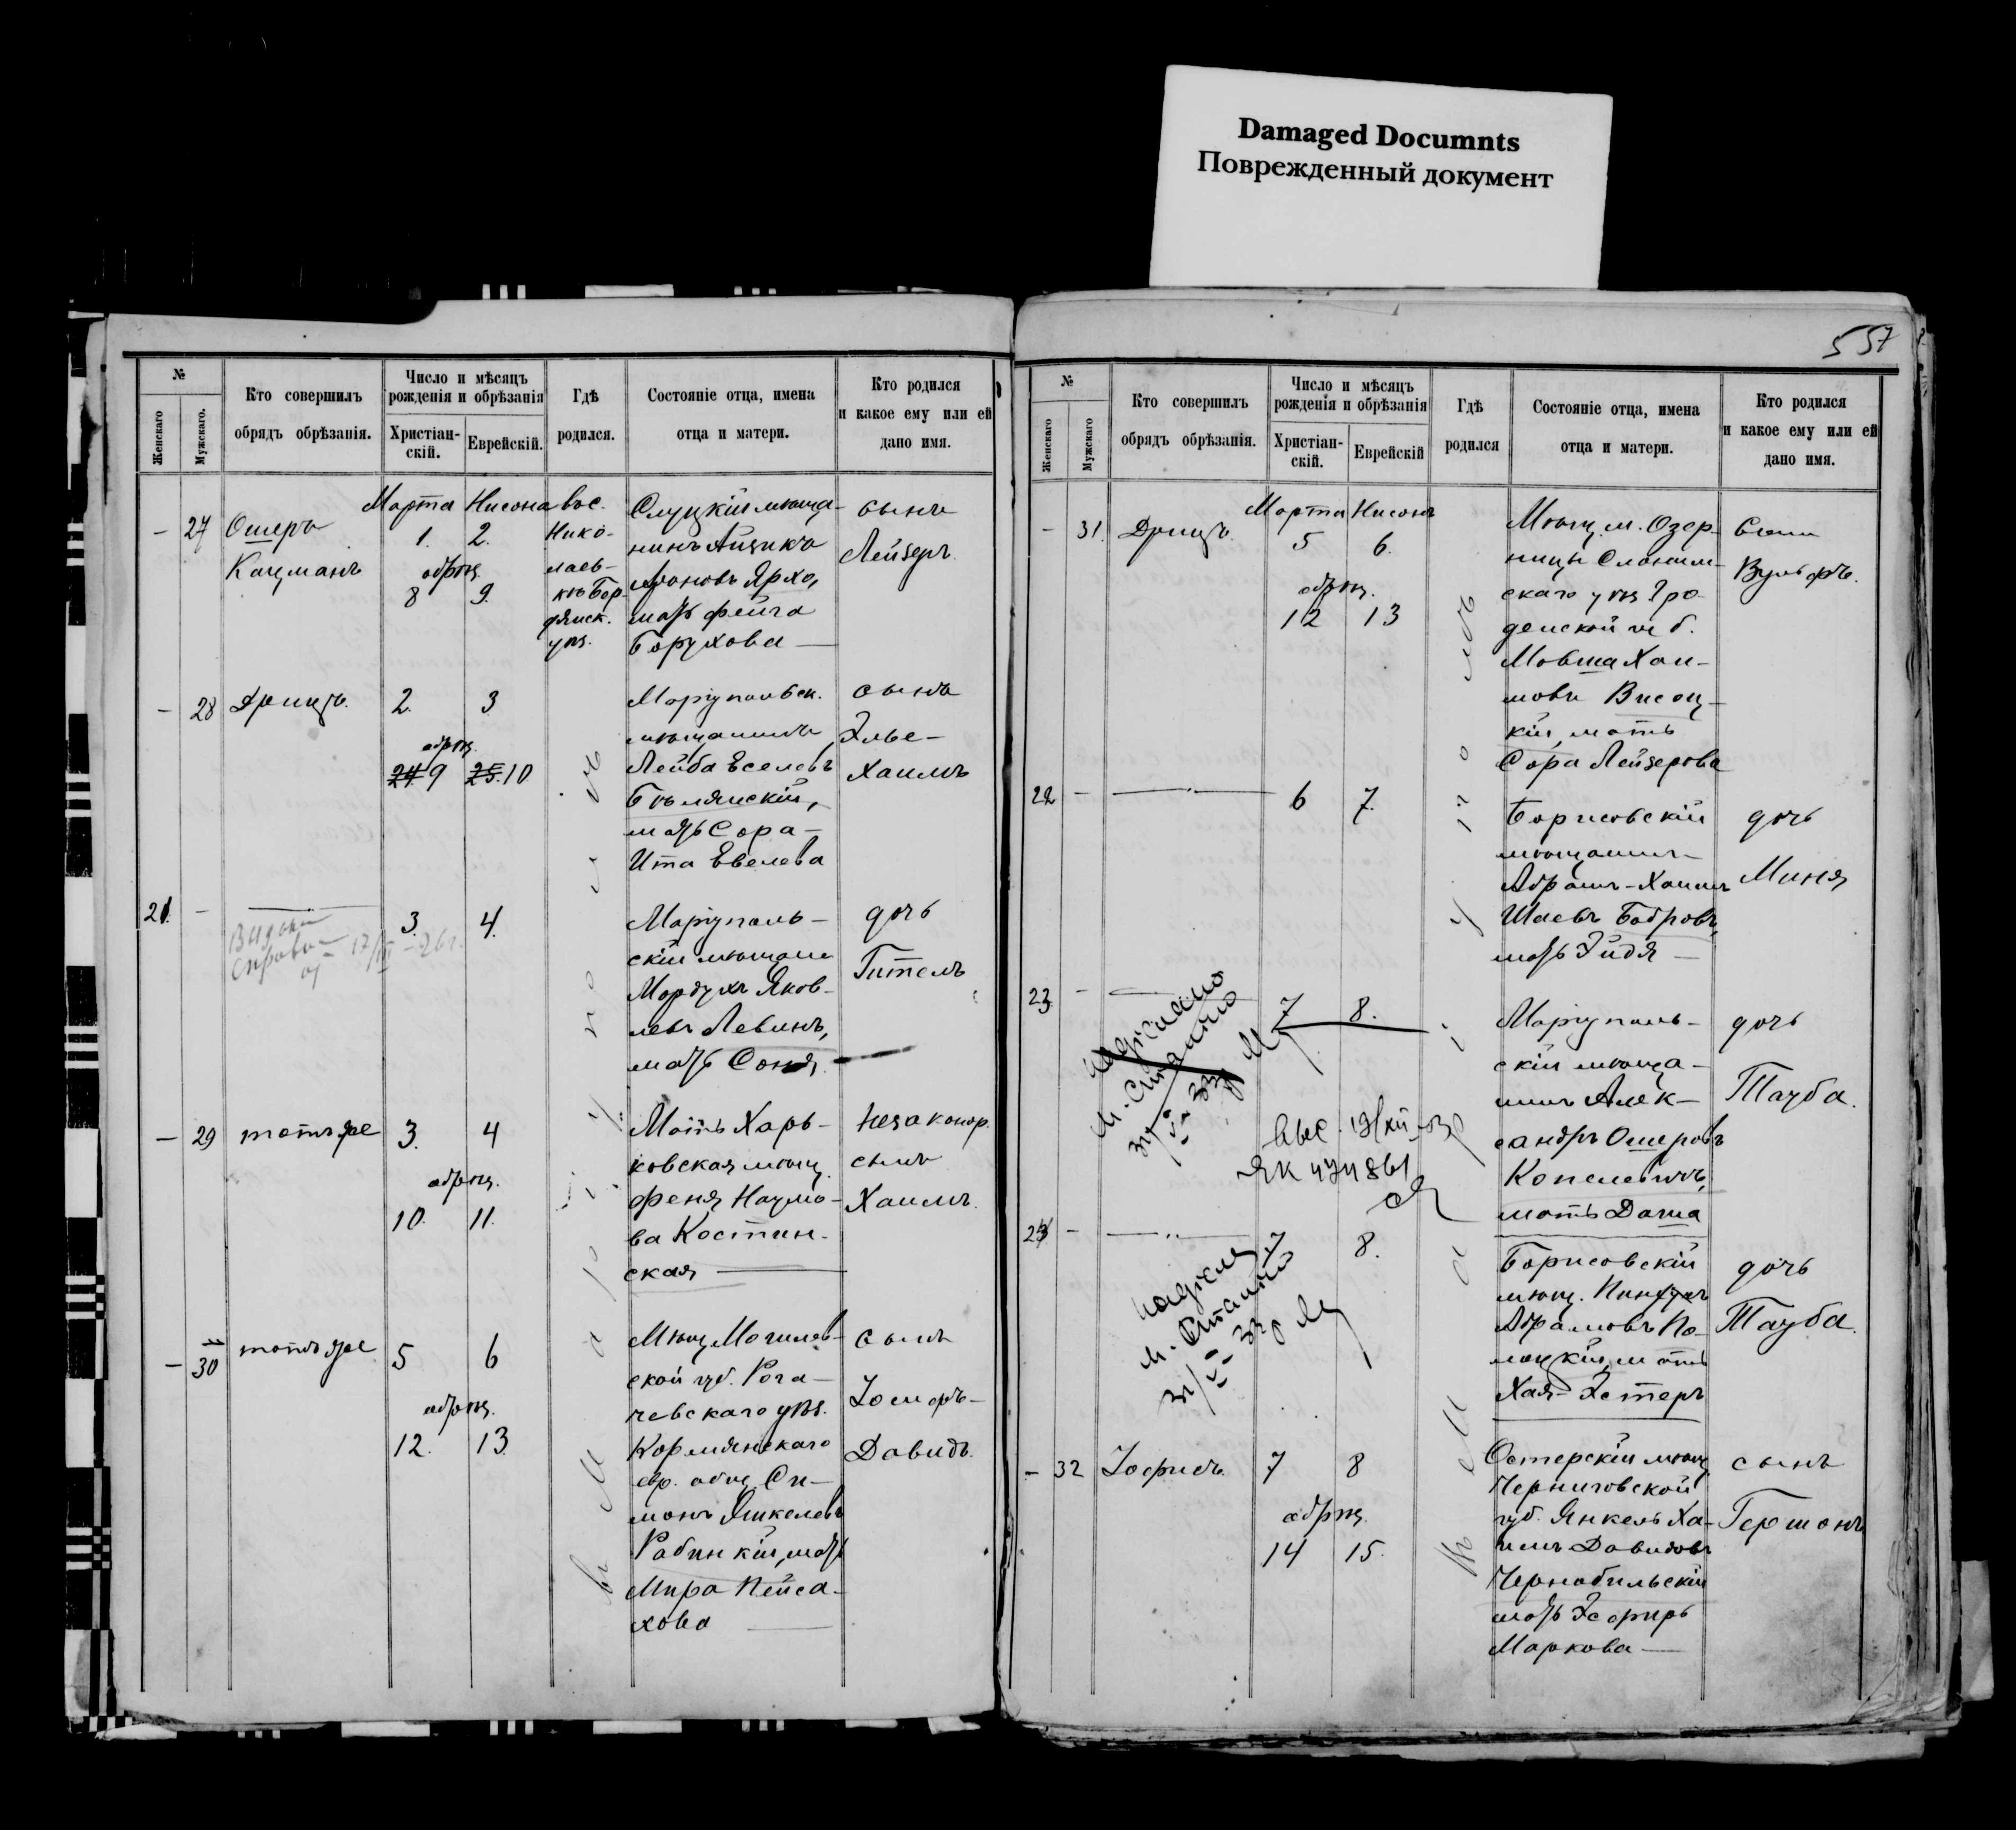 Damaged Documnts
Поврежденный документ
557
№
Женскаго
Мужскаго.
Кто совершилъ
обрядъ обрѣзанія.
Число и мѣсяцъ
рожденія и обрѣзанія
Христіан-
скій.
Еврейскій.
Гдѣ
родился.
Состояніе отца, имена
отца и матери.
Кто родился
и какое ему или ей
дано имя.
Марта Нисона
– 27
Ошеръ
Кацманъ
1. 2.
обрѣз.
8 9.
вос.
Нико-
лаев-
кѣ Бер-
дянск.
уѣз.
Слуцкій мѣща-
нинъ Айзикъ
Ароновъ Ярхо,
мать Фейга
Борухова —
сынъ
Лейзеръ
– 28
Дрицъ.
2. 3
обрѣз.
24 9 25. 10
Маріупольск.
мѣщанинъ
Лейба Еселевъ
Бѣлянскій,
мать Сора-
Ита Евелева
сынъ
Элье-
Хаимъ
21. –
3. 4.
17/III – 26 г.
Маріуполь-
скій мѣщан
Мордухъ Яков-
левъ Левинъ,
мать Соня,
дочь
Гителъ
– 29
тотъ же
3. 4
обрѣз.
10. 11.
Мать Харь-
ковская мѣщ.
Феня Наумо-
ва Костин-
ская —
незаконор.
сынъ
Хаимъ.
– 30
тотъ же
5 6
обрѣз.
12. 13
Мѣщ. Могилев-
ской губ. Рога-
чевскаго уѣз.
Кормянскаго
евр. общ. Си-
монъ Янкелевъ
Рабинкій, мать
Мира Пейса-
хова —
сынъ
Іосифъ-
Давидъ.
въ Маріуполѣ
№
Женскаго
Мужскаго
Кто совершилъ
обрядъ обрѣзанія.
Число и мѣсяцъ
рожденія и обрѣзанія
Христіан-
скій.
Еврейскій
Гдѣ
родился
Состояніе отца, имена
отца и матери.
Кто родился
и какое ему или ей
дано имя.
Марта Нисонъ
– 31.
Дрицъ.
5 6.
обрѣз.
12 13
Мѣщ. м. Озер-
ницы Слоним-
скаго уѣз. Гро-
денской губ.
Мовша Хаи-
мовъ Висоц-
кій, мать
Сора Лейзерова
Сынъ
Вульфъ.
22 –
6 7.
Борисовскій
мѣщанинъ
Абрамъ-Хаимъ
Шаевъ Бобровъ,
мать Эйдя —
дочь
Миня
23 –
7 8.
Маріуполь-
скій мѣща-
нинъ Алек-
сандръ Ошеровъ
Копелевичъ,
мать Даша
дочь
Тауба.
ЯК 474861
–
7 8.
Борисовскій
мѣщ. Пинхусъ
Абрамовъ По-
лоцкій, мать
Хая-Эстеръ
дочь
Тауба.
– 32
7 8
обрѣз.
14 15.
Остерскій мѣщ.
Черниговской
губ. Янкель Ха-
имъ Давидовъ
Чернобильскій
мать Эсфирь
Маркова —
сынъ
Гершонъ